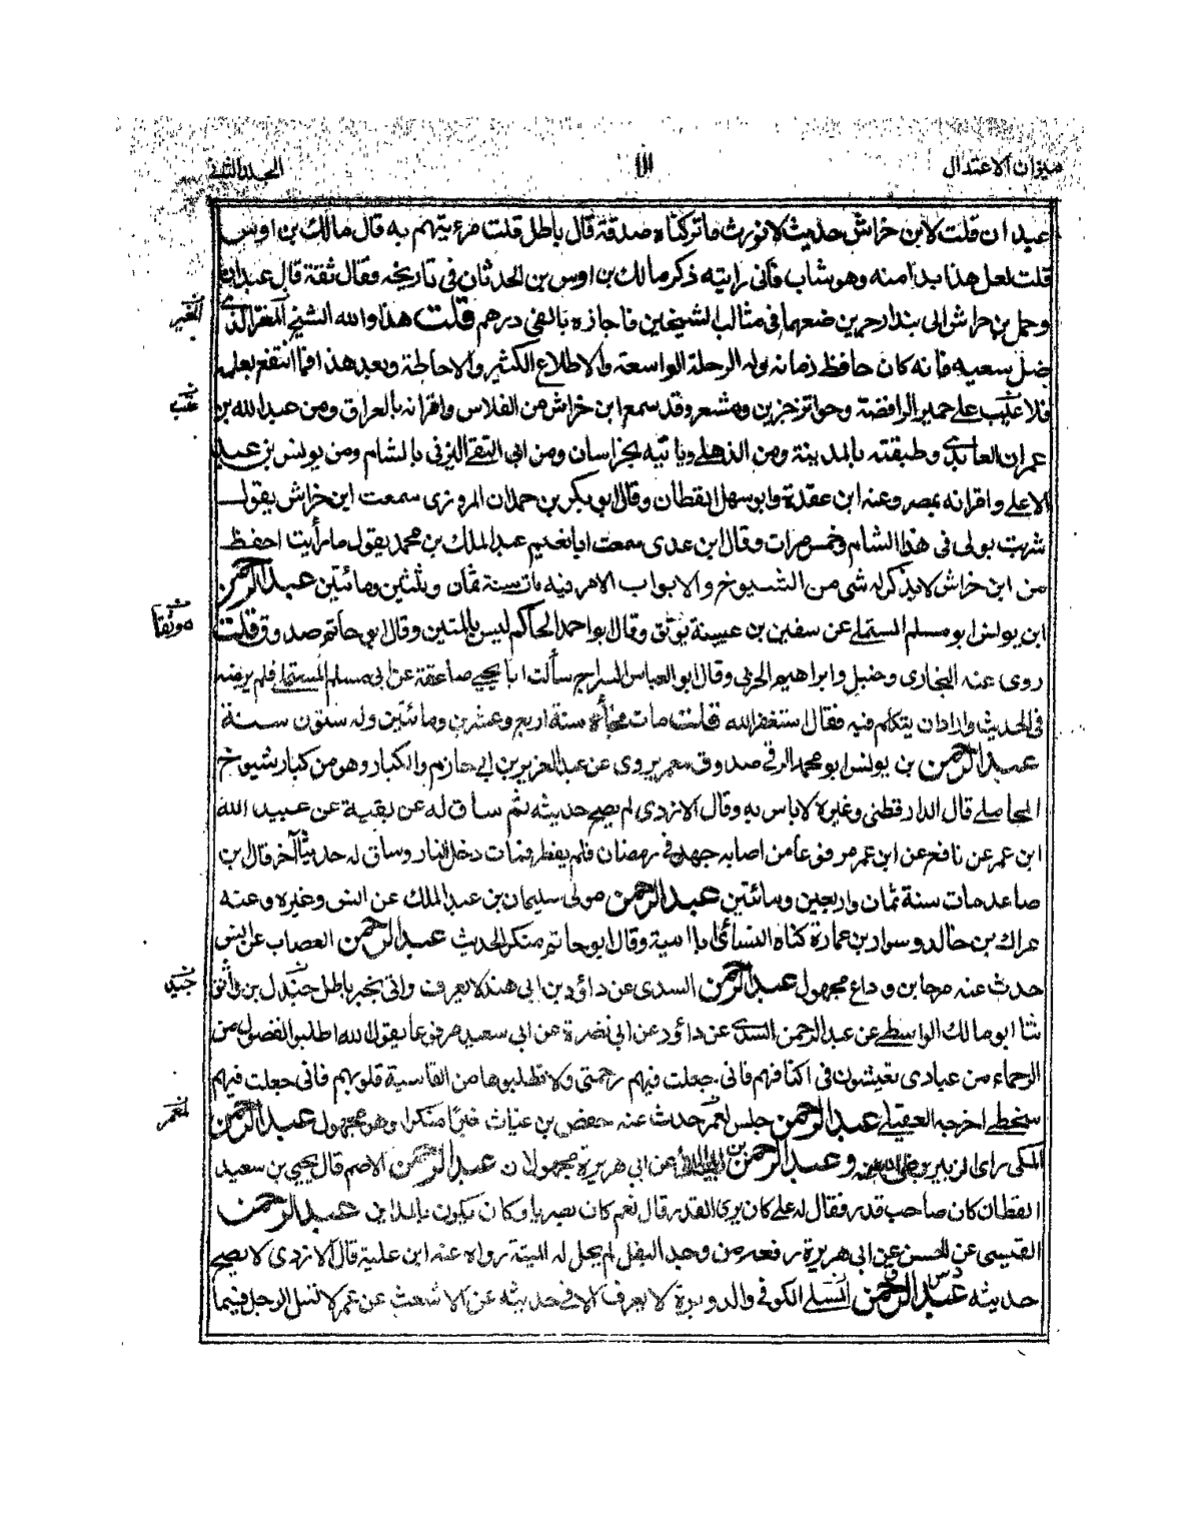 ميزان الاعتدال ١١١ المجلد الثانى
عبدان قلت لابن خراش حديث لا نورث ما تركناه صدقة قال باطل قلت من تتهم به قال مالك بن اوس
قلت لعل هذا بدا منه وهو شاب فانى رايته ذكر مالك بن اوس بن الحدثان فى تاريخه فقال ثقة قال عبدان
وحمل بن خراش الى بندار جزين صنعهما فى مثالب الشيخين فاجازه بالفى درهم قلت هذا والله الشيخ المعثر الذى
ضل سعيه فانه كان حافظ زمانه وله الرحلة الواسعة والاطلاع الكثير والاحاطة وبعد هذا فما انتفع بعلمه
فلا عتب على حمير الرافضة وحواتر جزين ومشعر وقد سمع ابن خراش من الفلاس واقرانه بالعراق ومن عبد الله بن
عمران العابدى وطبقته بالمدينة ومن الذهلى وبابته بخراسان ومن ابى التقى اليزنى بالشام ومن يونس بن عبد
الاعلى واقرانه بمصر وعنه ابن عقدة وابو سهل القطان وقال ابو بكر بن حمدان المروزى سمعت ابن خراش يقول
شربت بولى فى هذا الشام خمس مرات وقال ابن عدى سمعت ابا نعيم عبد الملك بن محمد يقول ما رأيت احفظ
من ابن خراش لا يذكر له شى من الشيوخ والابواب الا مر فيه مات سنة ثمان وثلثين ومائتين عبد الرحمن
ابن يونس ابو مسلم المستملى عن سفين بن عيينة يوثق وقال ابو احمد الحاكم ليس بالمتين وقال ابو حاتم صدوق قلت
روى عنه البخارى وحنبل وابراهيم الحربى وقال ابو العباس السراج سألت ابا يحيى صاعقة عن ابى مسلم المستملى فلم يرضه
فى الحديث واراد ان يتكلم فيه فقال استغفر الله قلت مات فجأة سنة اربع وعشرين ومائتين وله ستون سنة
عبد الرحمن بن يونس ابو محمد الرقى صدوق معمر يروى عن عبد العزيز بن ابى حازم والكبار وهو من كبار شيوخ
المحاملى قال الدارقطنى وغيره لا باس به وقال الازدى لم يصح حديثه ثم ساق له عن بقية عن عبيد الله
ابن عمر عن نافع عن ابن عمر مرفوعا من اصابه جهد فى رمضان فلم يفطر فمات دخل النار وساق له حديثا آخر قال بن
صاعد مات سنة ثمان واربعين ومائتين عبد الرحمن مولى سليمان بن عبد الملك عن انس وغيره وعنه
عراك بن خالد وسوار بن عمارة كناه النسائى ابا امية وقال ابو حاتم منكر الحديث عبد الرحمن العصاب عن انس
حدث عنه مرجا بن وداع مجهول عبد الرحمن السدى عن داؤد بن ابى هند لا يعرف واتى بخبر باطل جندل بن واثق
ثنا ابو مالك الواسطى عن عبد الرحمن السدى عن داؤد عن ابى نضرة عن ابى سعيد مرفوعا يقول الله اطلبوا الفضول من
الرحماء من عبادى تعيشون فى اكنافهم فانى جعلت فيهم رحمتى ولا تطلبوها من القاسية قلوبهم فانى جعلت فيهم
سخطى اخرجه العقيلى عبد الرحمن جليس لعمر حدث عنه حفص بن غياث خبرا منكرا وهو مجهول عبد الرحمن
المكى راى الزبير بن وعبد الرحمن بن عن ابى هريرة مجهولان عبد الرحمن الاصم قال يحيى بن سعيد
القطان كان صاحب قدر فقال له على كان يرى القدر قال نعم كان بصريا وكان يكون بالمداين عبد الرحمن
القيسى عن الحسن عن ابى هريرة رفعه من وجد البقل لم يحل له الميتة رواه عنه ابن علية قال الازدى لا يصح
حديثه عبد الرحمن المسلى الكوفى والد وبرة لا يعرف الا فى حديثه عن الاشعث عن عمر لا تسئل الرجل فيما
المغير
عتب
موثقا
جندل
لعمر